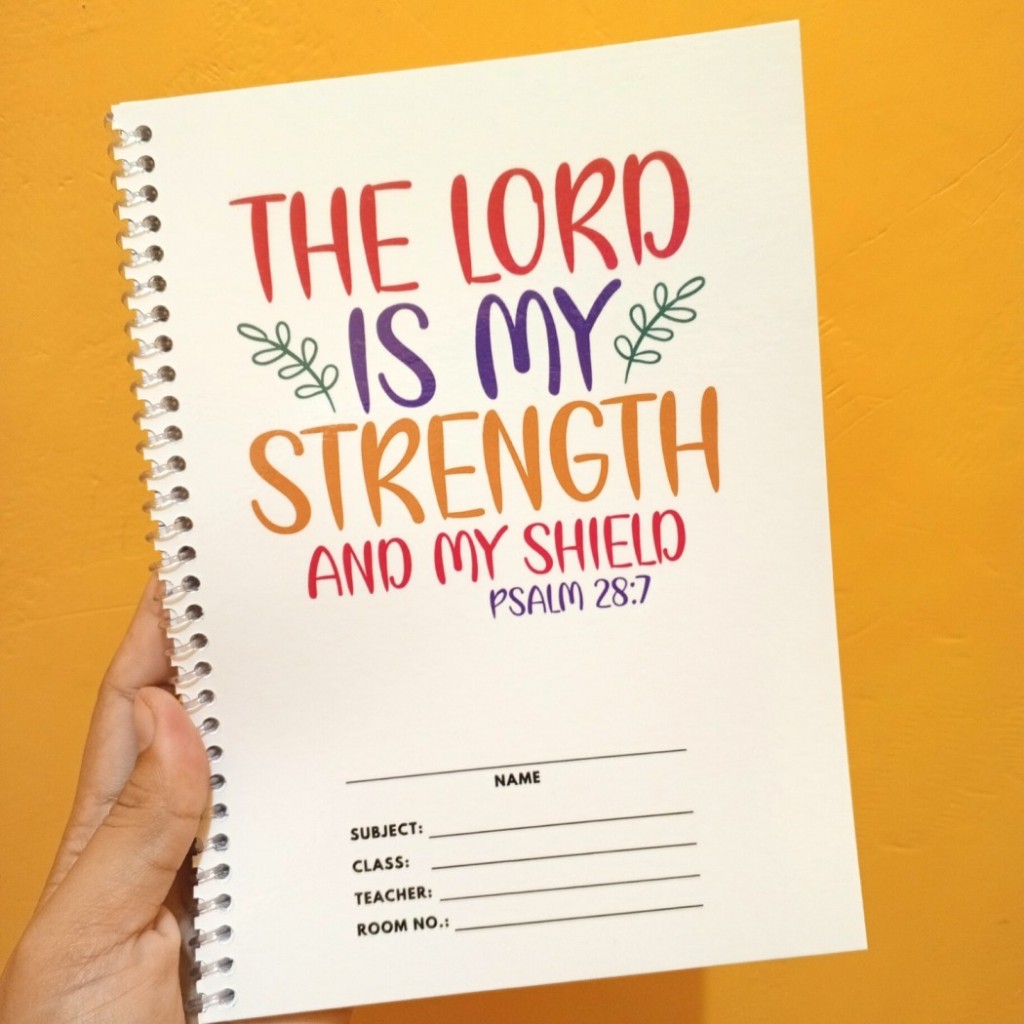 THE LORD
IS MY
STRENGTH
AND MY SHIELD
PSALM 28:7
NAME
SUBJECT:
CLASS:
TEACHER:
ROOM NO.: